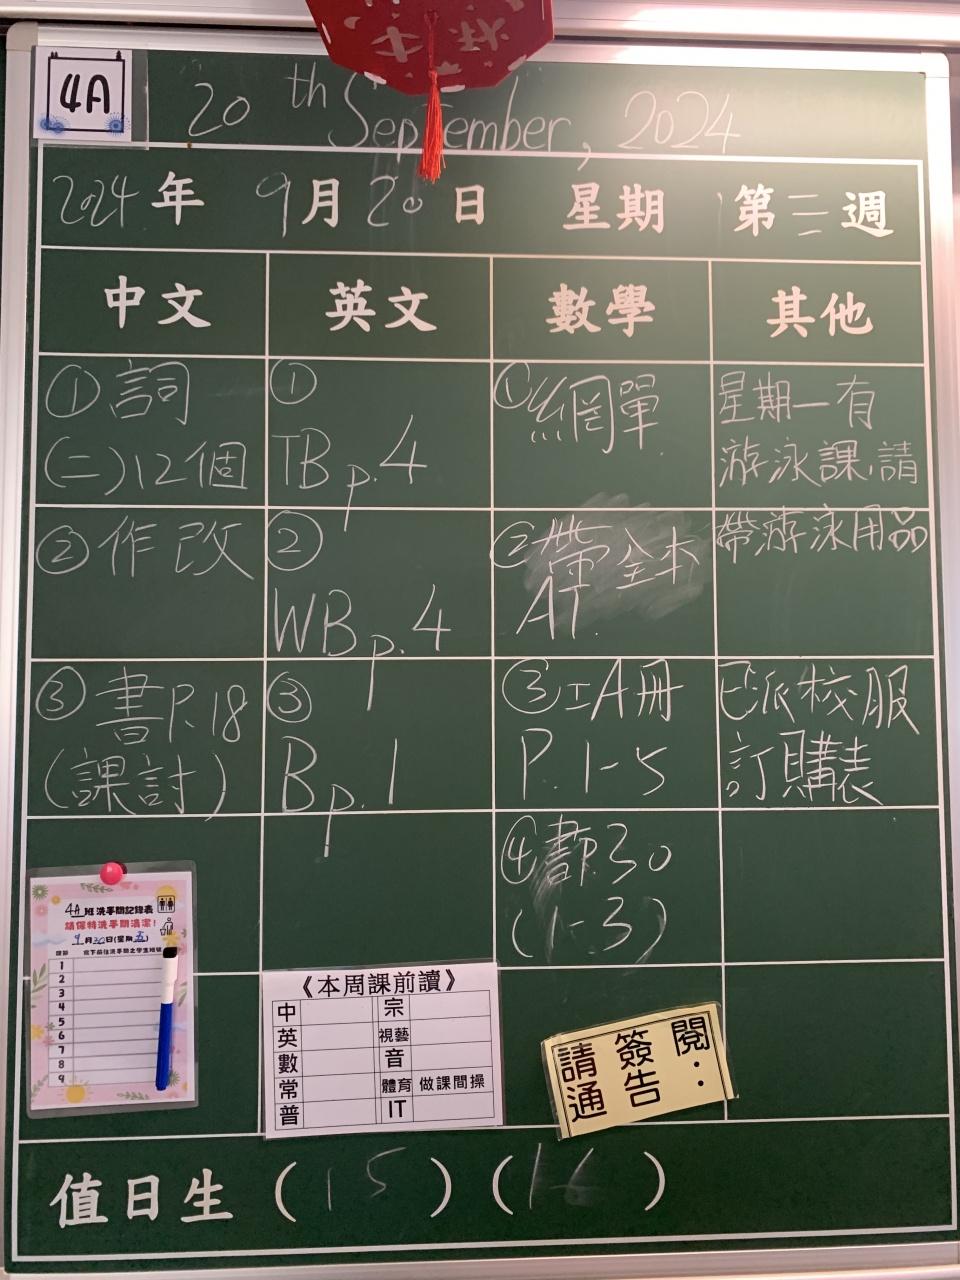 4A
20th September, 2024
2024年 9月20日 星期 第三週
中文 英文 數學 其他
① 詞
(二)12個
② 作改
③ 書P.18
(課討)
①
TB p.4
②
WB p.4
③
B p.1
① 網單
② 帶全本
AT.
③ 工A冊
P.1-5
④ 書P.30
(1-3)
星期一有
游泳課,請
帶游泳用品
已派校服
訂購表
4A班洗手間記錄表
請保持洗手間清潔!
9月20日(星期五)
1
2
3
4
5
6
7
8
9
《本周課前讀》
中 宗
英 視藝
數 音
常 體育 做課間操
普 IT
請簽閱:
通告
值日生 (15) (16)